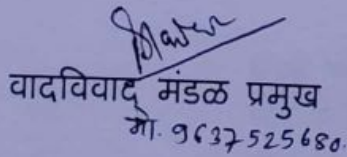 वादविवाद मंडळ प्रमुख
मो. 9637525680.